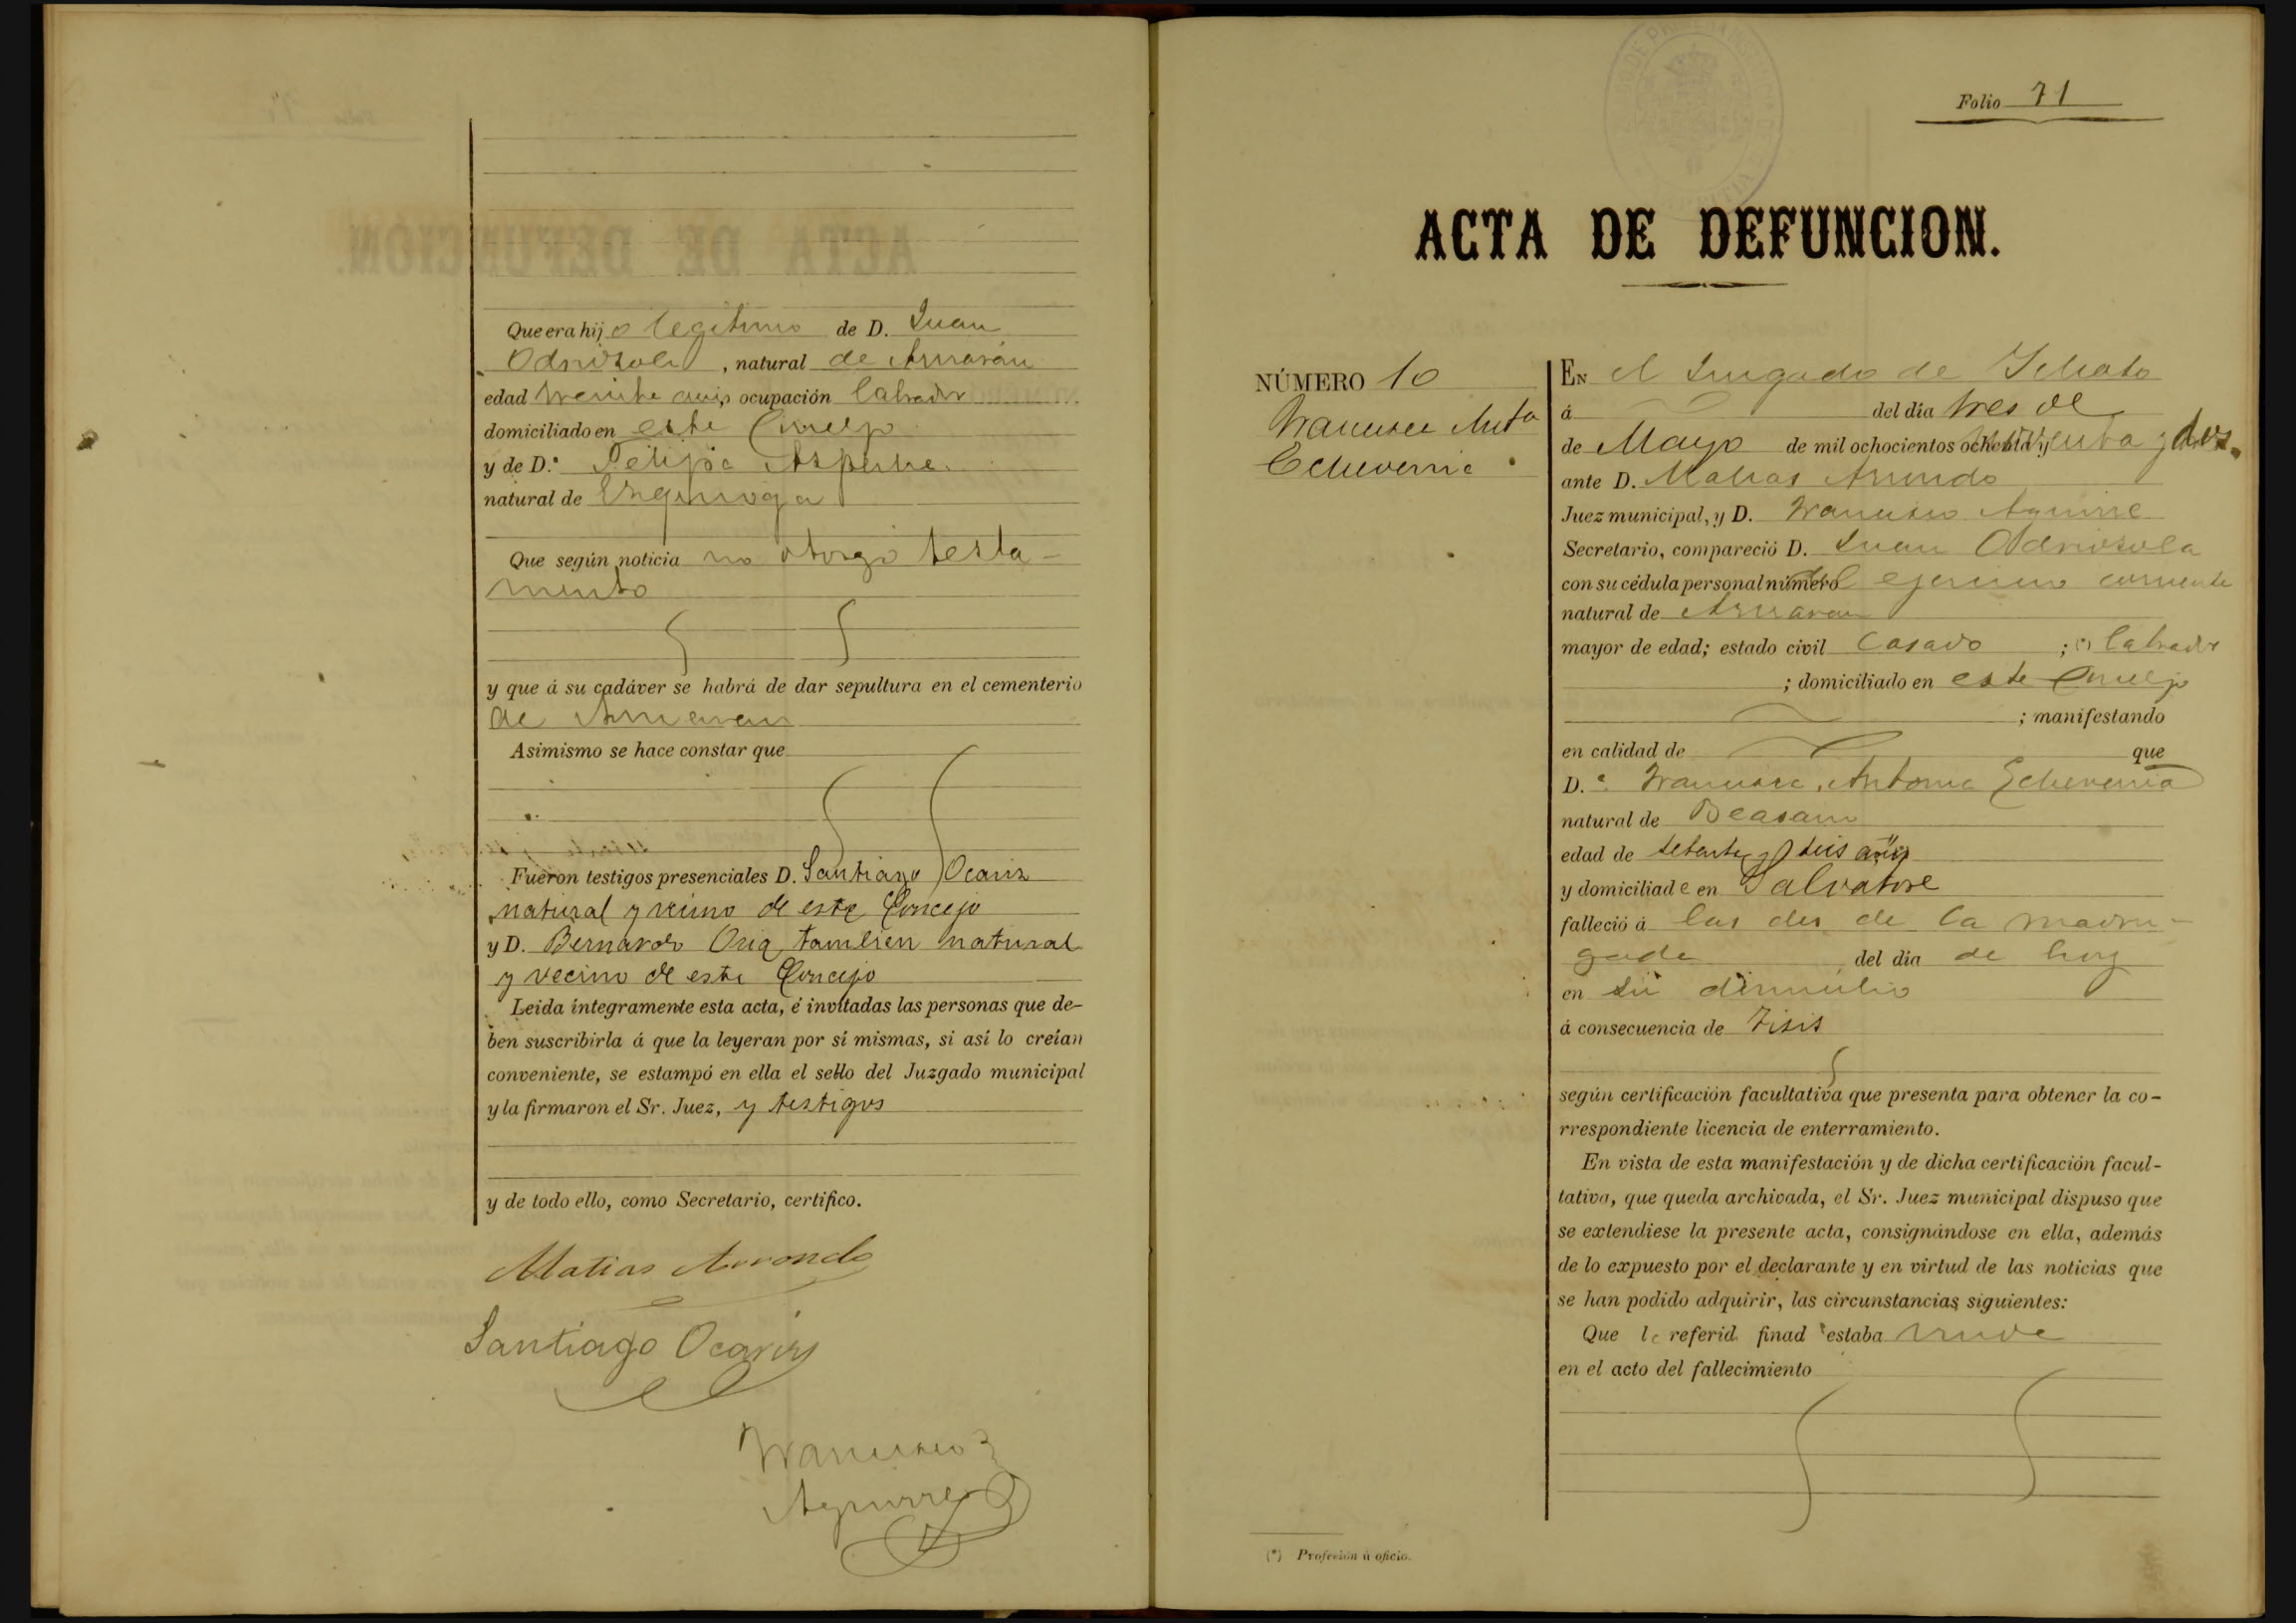 Que era hijo legitimo de D. Juan
Odriozola, natural de Arriarán
edad treinta años ocupación labrador
domiciliado en este Concejo
y de D.ª Felipa
natural de Ezquioga
Que según noticia no otorgó testa-
mento
y que á su cadáver se habrá de dar sepultura en el cementerio
de Arriaran
Asimismo se hace constar que
Fueron testigos presenciales D. Santiago Ocariz
natural y vecino de este Concejo
y D. Bernardo Oria, tambien natural
y vecino de este Concejo
Leida íntegramente esta acta, é invitadas las personas que de-
ben suscribirla á que la leyeran por sí mismas, si así lo creían
conveniente, se estampó en ella el sello del Juzgado municipal
y la firmaron el Sr. Juez, y testigos
y de todo ello, como Secretario, certifico.
Matias Arrondo
Santiago Ocariz
Francisco
Aguirre
Folio 71
ACTA DE DEFUNCION.
NÚMERO 10
Francisca Ant.a
Echeverria
EN el Juzgado de
á del día tres de
de Mayo de mil ochocientos ochenta y noventa y dos.
ante D. Matias Arrondo
Juez municipal, y D. Francisco Aguirre
Secretario, compareció D. Juan Odriozola
con su cédula personal número del ejercicio corriente
natural de Arriaran
mayor de edad; estado civil Casado ; (*) labrador
; domiciliado en este Concejo
; manifestando
en calidad de que
D.ª Francisca Antonia Echeverria
natural de Beasain
edad de setenta y seis años
y domiciliada en Salvatore
falleció á las dos de la madru-
gada del día de hoy
en su domicilio
á consecuencia de Tisis
según certificación facultativa que presenta para obtener la co-
rrespondiente licencia de enterramiento.
En vista de esta manifestación y de dicha certificación facul-
tativa, que queda archivada, el Sr. Juez municipal dispuso que
se extendiese la presente acta, consignándose en ella, además
de lo expuesto por el declarante y en virtud de las noticias que
se han podido adquirir, las circunstancias siguientes:
Que la referid finad estaba viuda
en el acto del fallecimiento
(*) Profesión ú oficio.